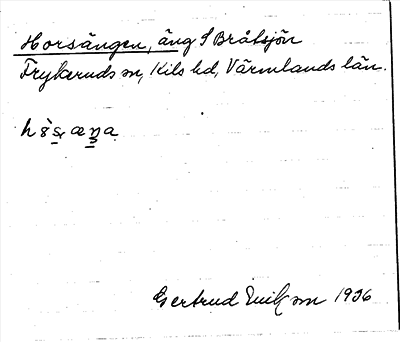 Horsängen, äng S Bråtsjön
Frykeruds sn, Kils hd, Värmlands län.
Gertrud 1936